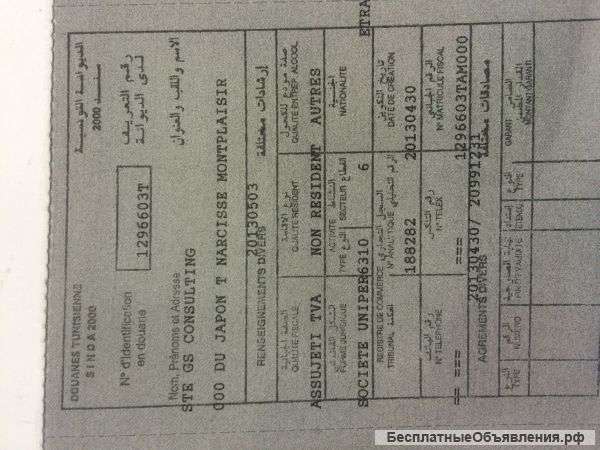 DOUANES TUNISIENNE
SINDA 2000
الديوانة التونسية
سند 2000
N° d'Identification
en douane
1296603T
رقم التعريف
لدى الديوانة
Nom, Prénoms et Adresse
الاسم واللقب والعنوان
STE GS CONSULTING
COO DU JAPON T NARCISSE MONTPLAISIR
20130503
RENSEIGNEMENTS DIVERS
إرشادات مختلفة
QUALITE FISCALE
QUALITE RESIDENT
QUALITE ENTREP. ALCOOL
ASSUJETI TVA
NON RESIDENT
AUTRES
FORME JURIDIQUE
TYPE
ACTIVITE
SECTEUR
القطاع
NATIONALITE
الجنسية
SOCIETE UNIPER
6310
6
ETRA
REGISTRE DE COMMERCE
السجل التجاري
TRIBUNAL
المحكمة
N° ANALYTIQUE
DATE DE CREATION
188282
20130430
N° TELEPHONE
N° TELEX
N° MATRICULE FISCAL
== ===
===
1296603TAM000
20130430/ 20991231
AGREMENTS DIVERS
مصادقات مختلفة
TYPE
NUMERO
TYPE
GARANT
MONTANT GARANTI
БесплатныеОбъявления.рф